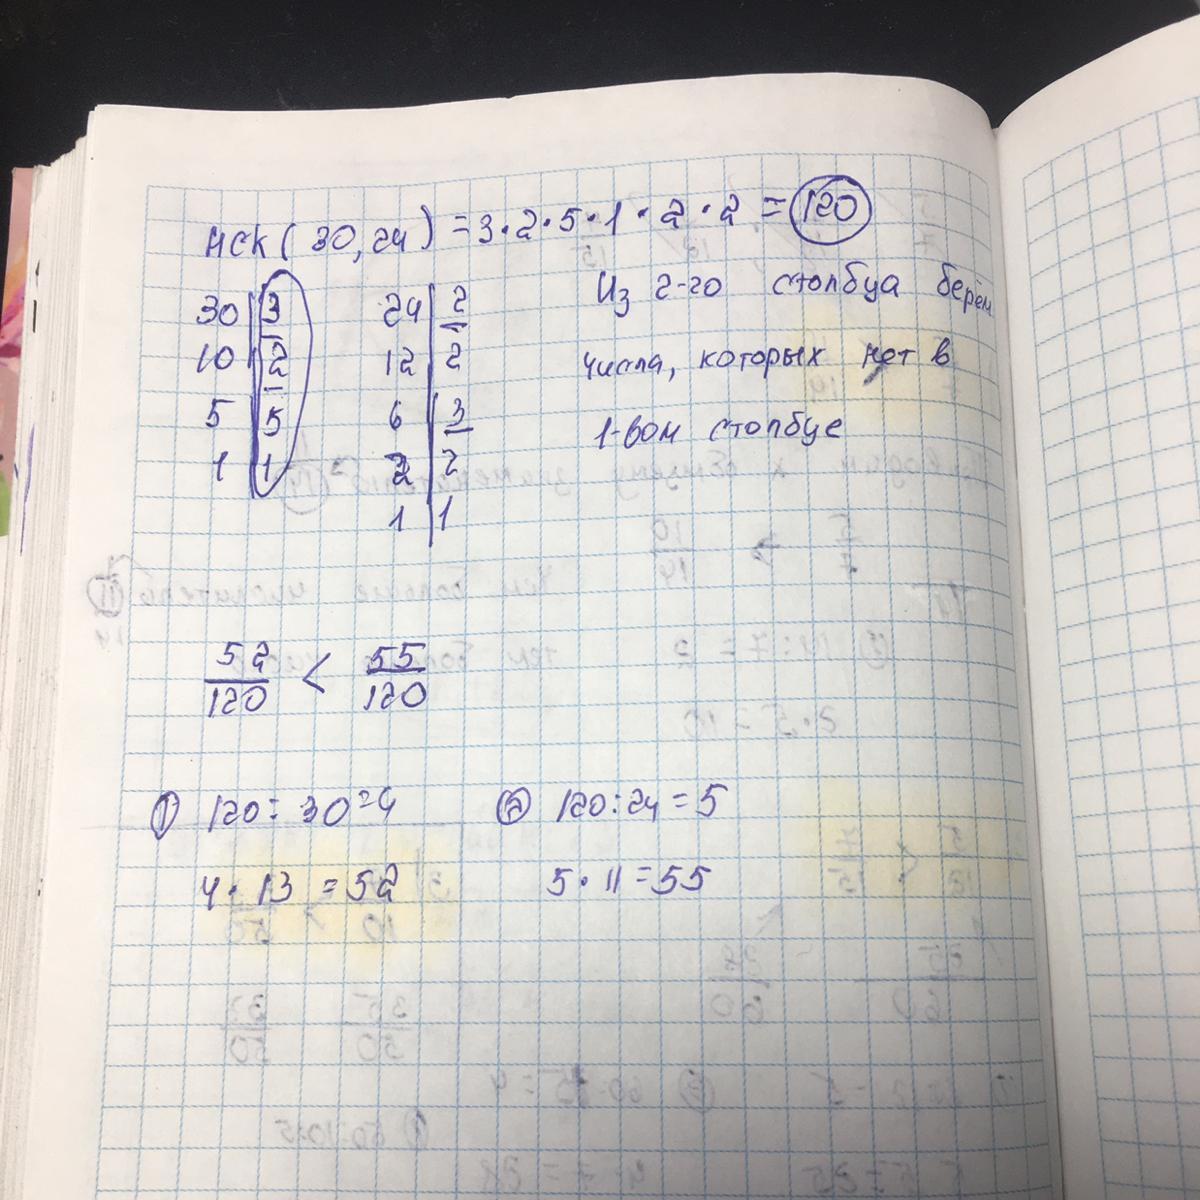 НСК ( 30, 24 ) = 3 · 2 · 5 · 1 · 2 · 2 = 120
30 | 3 24 | 2 Из 2-го столбца берём
10 | 2 12 | 2 числа, которых нет в
5 | 5 6 | 3 1-вом столбце
1 | 1 2 | 2
1 | 1
52/120 < 55/120
① 120 : 30 = 4 ② 120 : 24 = 5
4 · 13 = 52 5 · 11 = 55